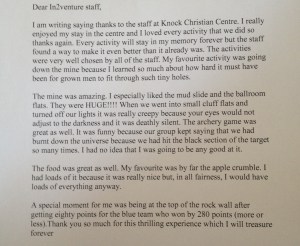 Dear In2venture staff,
I am writing saying thanks to the staff at Knock Christian Centre. I really
enjoyed my stay in the centre and I loved every activity that we did so
thanks again. Every activity will stay in my memory forever but the staff
found a way to make it even better than it already was. The activities
were very well chosen by all of the staff. My favourite activity was going
down the mine because I learned so much about how hard it must have
been for grown men to fit through such tiny holes.
The mine was amazing. I especially liked the mud slide and the ballroom
flats. They were HUGE!!!! When we went into small cluff flats and
turned off our lights it was really creepy because your eyes would not
adjust to the darkness and it was deathly silent. The archery game was
great as well. It was funny because our group kept saying that we had
burnt down the universe because we had hit the black section of the target
so many times. I had no idea that I was going to be any good at it.
The food was great as well. My favourite was by far the apple crumble. I
had loads of it because it was really nice but, in all fairness, I would have
loads of everything anyway.
A special moment for me was being at the top of the rock wall after
getting eighty points for the blue team who won by 280 points (more or
less).Thank you so much for this thrilling experience which I will treasure
forever